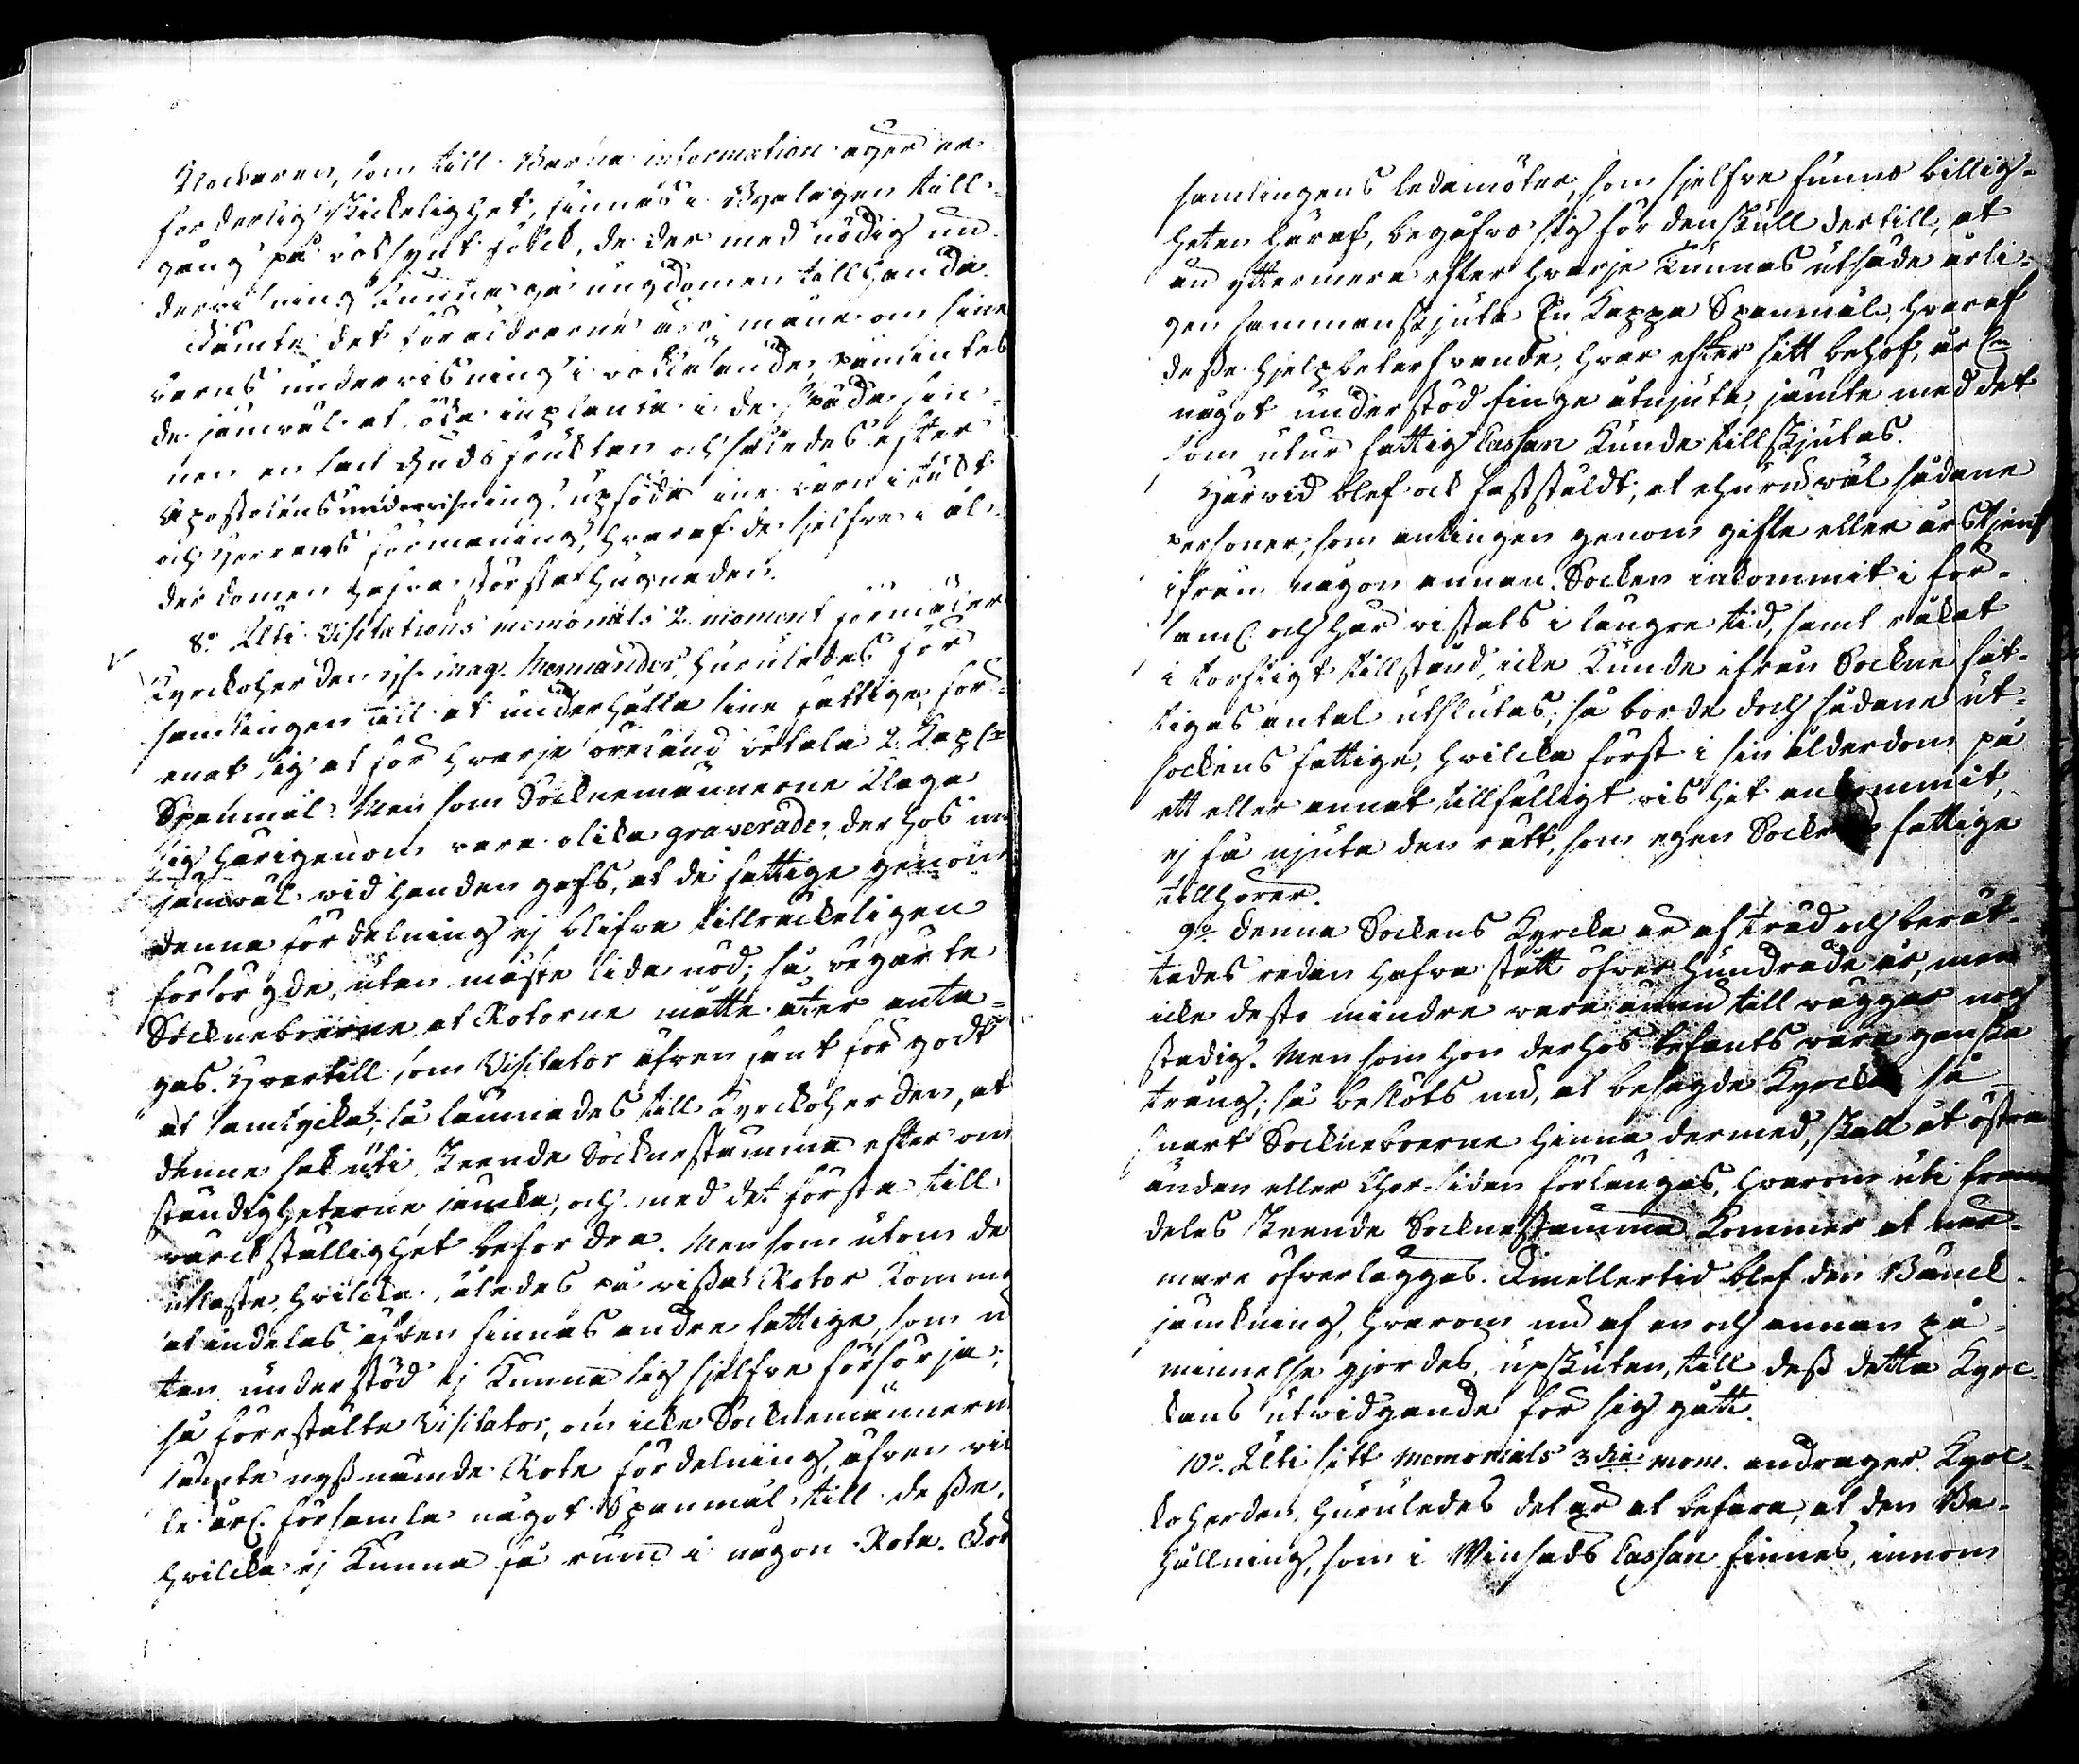 Klockaren, som till Barna information äger er-
forderlig skickelighet, finnes i Byalagen till-
gång på rätsynt folck, de der med nödig un-
dervisning kunna gå ungdomen tillhanda.
Jämte det föräldrarne äro måne om sine
barns undervisning i boklärande, påmintes
de jämväl at öka inplanta i de späda sin-
nen en san Gudsfruktan och således efter
Apostelens undervisning upföda sine barn i tukt
och Herrans förmaning, hvaraf de sjelfve i ål-
derdomen hafva största hugnaden.
8:o Uti Visitations memorials 2. moment förmäler
Kyrckoherden H:r Mag. Normander, huruledes för-
samlingen till at underhålla sine fattige, för-
enat sig at för hvarje öresland betala 2. Kap:r
Spanmål. Men som Socknemännerne klaga
sig härigenom vara olika graverade, der hos nu
jämväl vid handen gafs, at de fattige genom
denna fördelning ej blifva tillräckeligen
försörgde, utan måste lida nöd; så begärte
Sockneboerne at Rotorne måtte åter anta-
gas. Hvartill som Visitator äfven fant för godt
at samtycka; så lämnades till Kyrckoherden, at
denne sak uti skeende Socknestämma efter om-
ständigheterne jämka, och med det första till
värckställighet befordra. Men som utom de
utlaste, hvilcka således på vissa Rotor komma
at indelas, äfven finnas andre fattige, som u-
tan understöd ej kunna sig sjelfve försörja;
så förestälte Visitator, om icke Socknemännerne
jämte nyssnämde Rote fördelning, äfven vil-
le årl: församla något Spanmål till desse,
hvilcka ej kunna få rum i någon Rota. För-
samlingens ledamöter, som sjelfve funno billig-
heten häraf, begåfvo sig för den skull dertill, at
än yttermera efter hvarje Tunnas utsäde årli-
gen sammanskjuta En Kappa Spanmål, hvaraf
desse hjelpbehöfvande, hvar efter sitt behof, år:n
något understöd finge åtnjuta, jämte med det
som utur fattig Cassan kunde tillskjutas.
Härvid blef ock fastställdt, at ehuruväl sådane
personer, som antingen genom gifte eller årstjenst
ifrån någon annan Socken inkommit i för-
saml: och här vistats i längre tid, samt råkat
i torftigt tillstånd, icke kunde ifrån Sockne fat-
tigas antal utslutas, så borde dock sådane ut-
sockens fattige, hvilcka först i sin ålderdom på
ett eller annat tillfälligt vis hit ankommit,
ej få njuta den rätt, som egen Sockens fattige
tillhörer.
9:o Denna Sockens Kyrcka är af träd och berät-
tades redan hafva stått öfver hundrade år, men
icke desto mindre vara ännu till väggar nog
stadig. Men som hon derhos befants vara ganska
trång; så beslöts nu, at besagde Kyrcka så
snart Sockneboerne hinna dermed, skall åt östra
ändan eller Chor-sidan förlängas, hvarom uti fram-
deles skeende Socknestämma kommer at när-
mare öfverläggas. Imellertid blef den Bänck-
jämkning, hvarom nu af en och annan på-
minnelse gjordes, upskuten, till dess detta Kyrc-
kans utvidgande för sig gått.
10:o Uti sitt Memorials 3die mom. andrager Kyrc-
koherden, huruledes det är at befara, at den Be-
hållning, som i Winsads Cassan finnes, innom